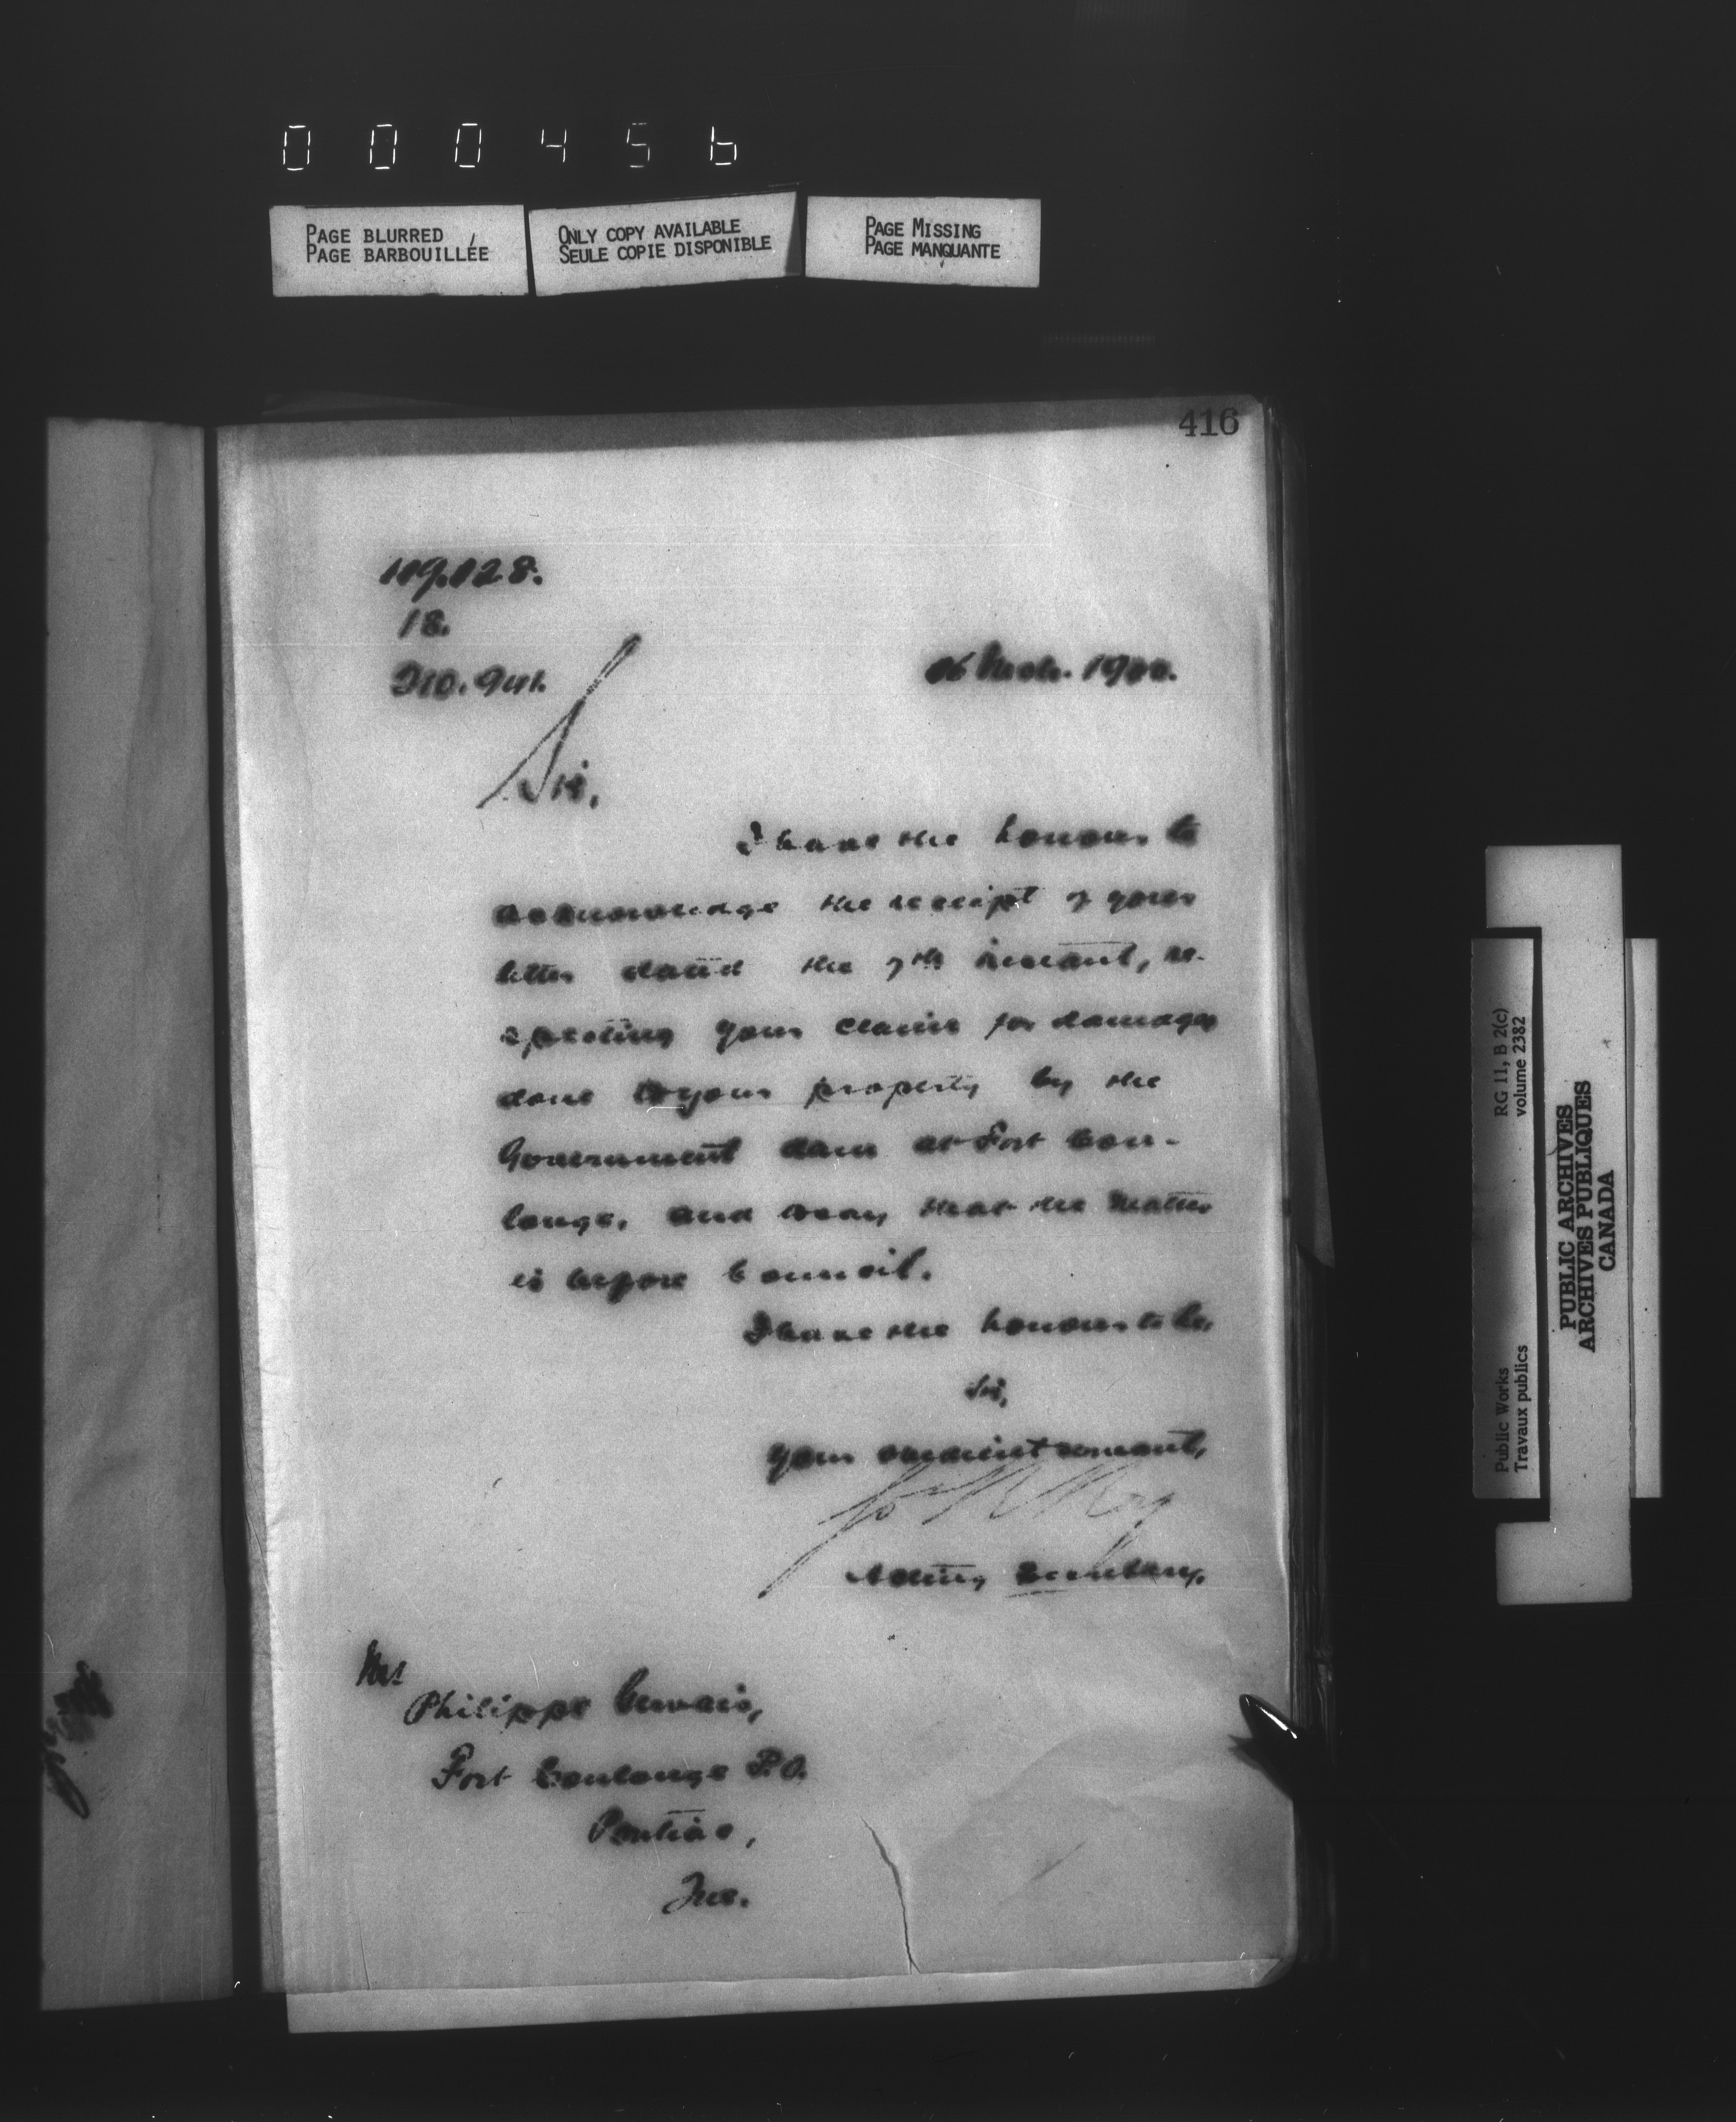 000456
PAGE BLURRED
PAGE BARBOUILLÉE
ONLY COPY AVAILABLE
SEULE COPIE DISPONIBLE
PAGE MISSING
PAGE MANQUANTE
416
18.
Sir,
I have the honour to
acknowledge the receipt of your
letter dated the 7th instant, re-
specting your claim for damages
done to your property by the
Government dam at Fort Cou-
longe, and to say that the matter
is before Council.
I have the honour to be,
Sir,
Your obedient servant,
Acting Secretary.
Mr
Philippe Gervais,
Fort Coulonge P.O.
Pontiac,
Que.
Public Works
Travaux publics
RG 11, B 2(c)
volume 2382
PUBLIC ARCHIVES
ARCHIVES PUBLIQUES
CANADA